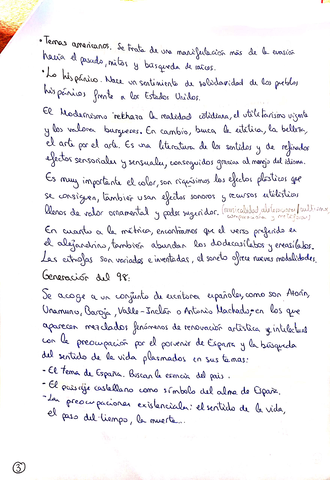 • Temas americanos. Se trata de una manifestación más de la evasión
hacia el pasado, mitos y búsqueda de raíces.
• Lo hispánico. Nace un sentimiento de solidaridad de los pueblos
hispánicos frente a los Estados Unidos.
El Modernismo rechaza la realidad cotidiana, el utilitarismo vigente
y los valores burgueses. En cambio, busca la estética, la belleza,
el arte por el arte. Es una literatura de los sentidos y de refinados
efectos sensoriales y sensuales, conseguidos gracias al manejo del idioma.
Es muy importante el color, son riquísimos los efectos plásticos que
se consiguen, también usan efectos sonoros y recursos estilísticos
llenos de valor ornamental y poder sugeridor.
En cuanto a la métrica, encontramos que el verso preferido es
el alejandrino, también abundan los dodecasílabos y eneasílabos.
Las estrofas son variadas e inventadas, el soneto ofrece nuevas modalidades.
Generación del 98:
Se acoge a un conjunto de escritores españoles, como son Azorín,
Unamuno, Baroja, Valle-Inclán o Antonio Machado, en los que
aparecen mezclados fenómenos de renovación artística e intelectual
con la preocupación por el porvenir de España y la búsqueda
del sentido de la vida plasmados en sus temas:
- El tema de España. Buscan la esencia del país.
- El paisaje castellano como símbolo del alma de España.
- Las preocupaciones existenciales: el sentido de la vida,
el paso del tiempo, la muerte...
3